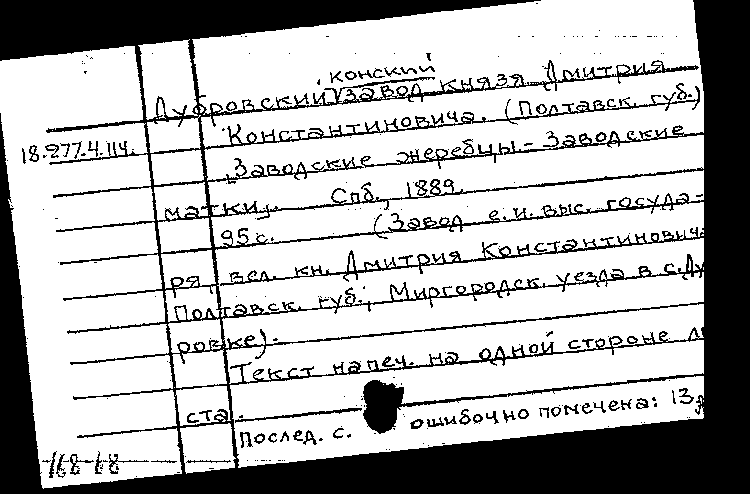 конский
Дубровский завод князя Дмитрия
18.277.4.114. Константиновича. (Полтавск. губ.)
„Заводские жеребцы - Заводские
матки„. Спб., 1889.
95 с. (Завод е.и. выс. госуда-
ря, вел. кн. Дмитрия Константинович
Полтавск. губ., Миргородск. уезда в с. Ду
ровке).
Текст напеч. на одной стороне ли
ста.
Послед. с. ошибочно помечена: 13
168-68